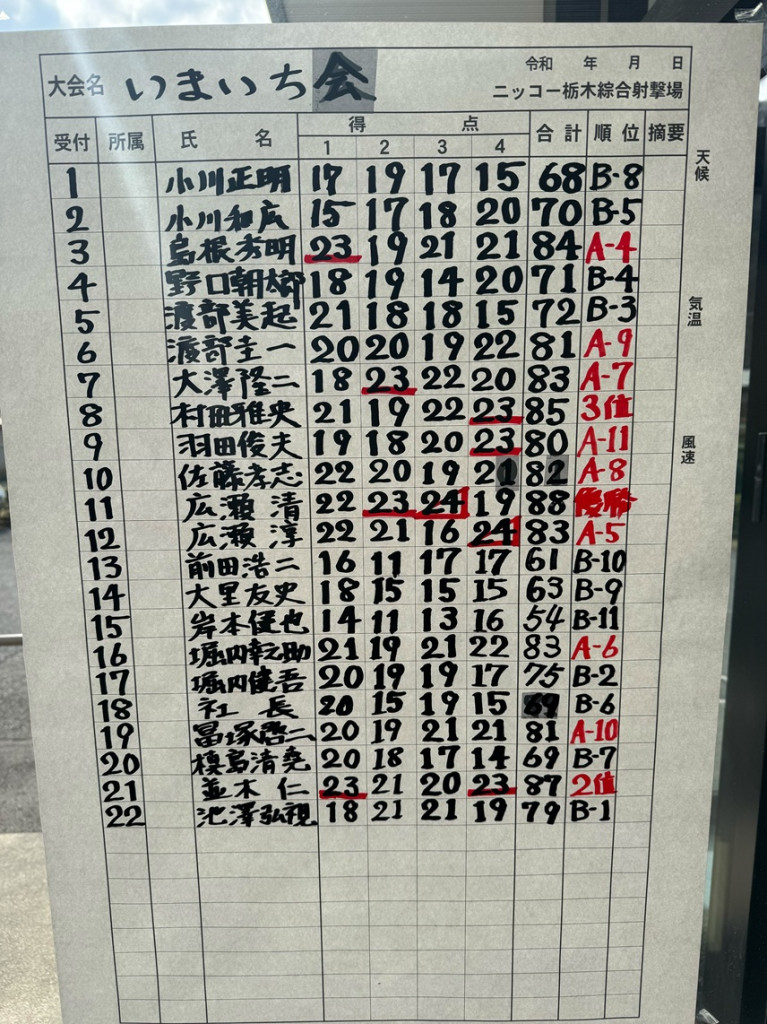 大会名 いまいち会
令和 年 月 日
ニッコー栃木綜合射撃場
受付 所属 氏名 得点 合計 順位 摘要
1 2 3 4
1 小川正明 17 19 17 15 68 B-8
2 小川和広 15 17 18 20 70 B-5
3 島根秀明 23 19 21 21 84 A-4
4 野口朝太郎 18 19 14 20 71 B-4
5 渡部美起 21 18 18 15 72 B-3
6 渡部圭一 20 20 19 22 81 A-9
7 大澤隆二 18 23 22 20 83 A-7
8 村田雅央 21 19 22 23 85 3位
9 羽田俊夫 19 18 20 23 80 A-11
10 佐藤孝志 22 20 19 21 82 A-8
11 広瀬 清 22 23 24 19 88 優勝
12 広瀬 淳 22 21 16 24 83 A-5
13 前田浩二 16 11 17 17 61 B-10
14 大里友史 18 15 15 15 63 B-9
15 岸本健也 14 11 13 16 54 B-11
16 堀内幸之助 21 19 21 22 83 A-6
17 堀内健吾 20 19 19 17 75 B-2
18 社長 20 15 19 15 69 B-6
19 冨塚啓二 20 19 21 21 81 A-10
20 槙島清尭 20 18 17 14 69 B-7
21 並木 仁 23 21 20 23 87 2位
22 池澤弘視 18 21 21 19 79 B-1
天候
気温
風速